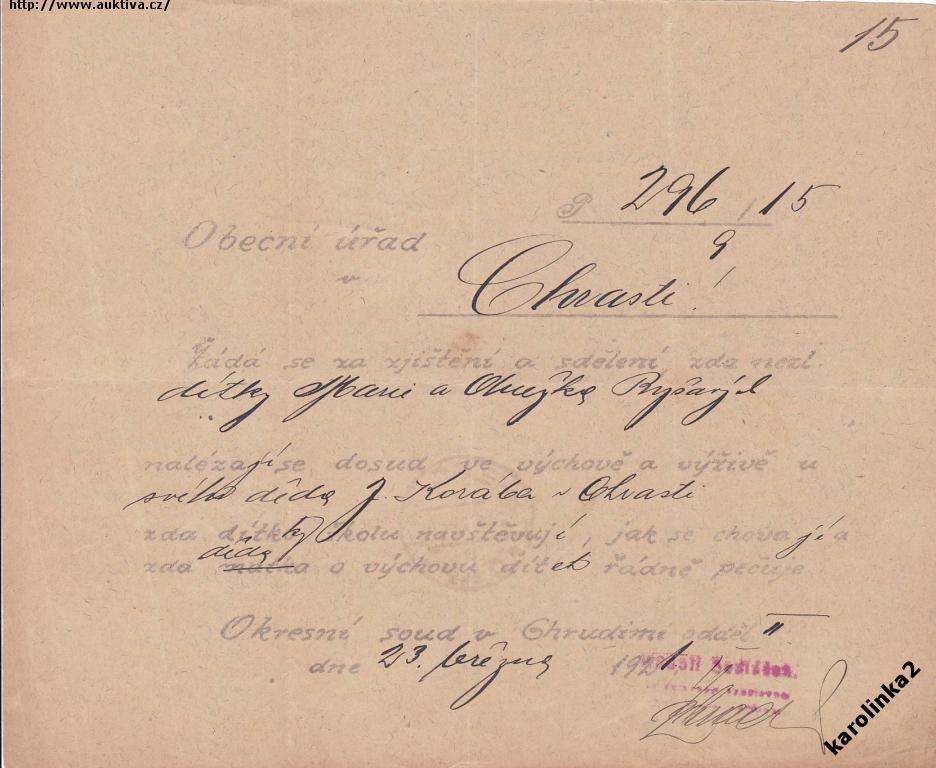 http://www.auktiva.cz/
15
P 296 / 15
9
Obecní úřad
v Chrasti!
Žádá se za zjištění a sdělení zda nezl.
dítky Marie a Ryšavých
nalézají se dosud ve výchově a výživě u
svého děda J. Korába v Chrasti
zda dítky školu navštěvují, jak se chovají a
děda
zda matka o výchovu dítek řádně pečuje
Okresní soud v Chrudimi odděl. II
dne 23. března 1921
karolinka2